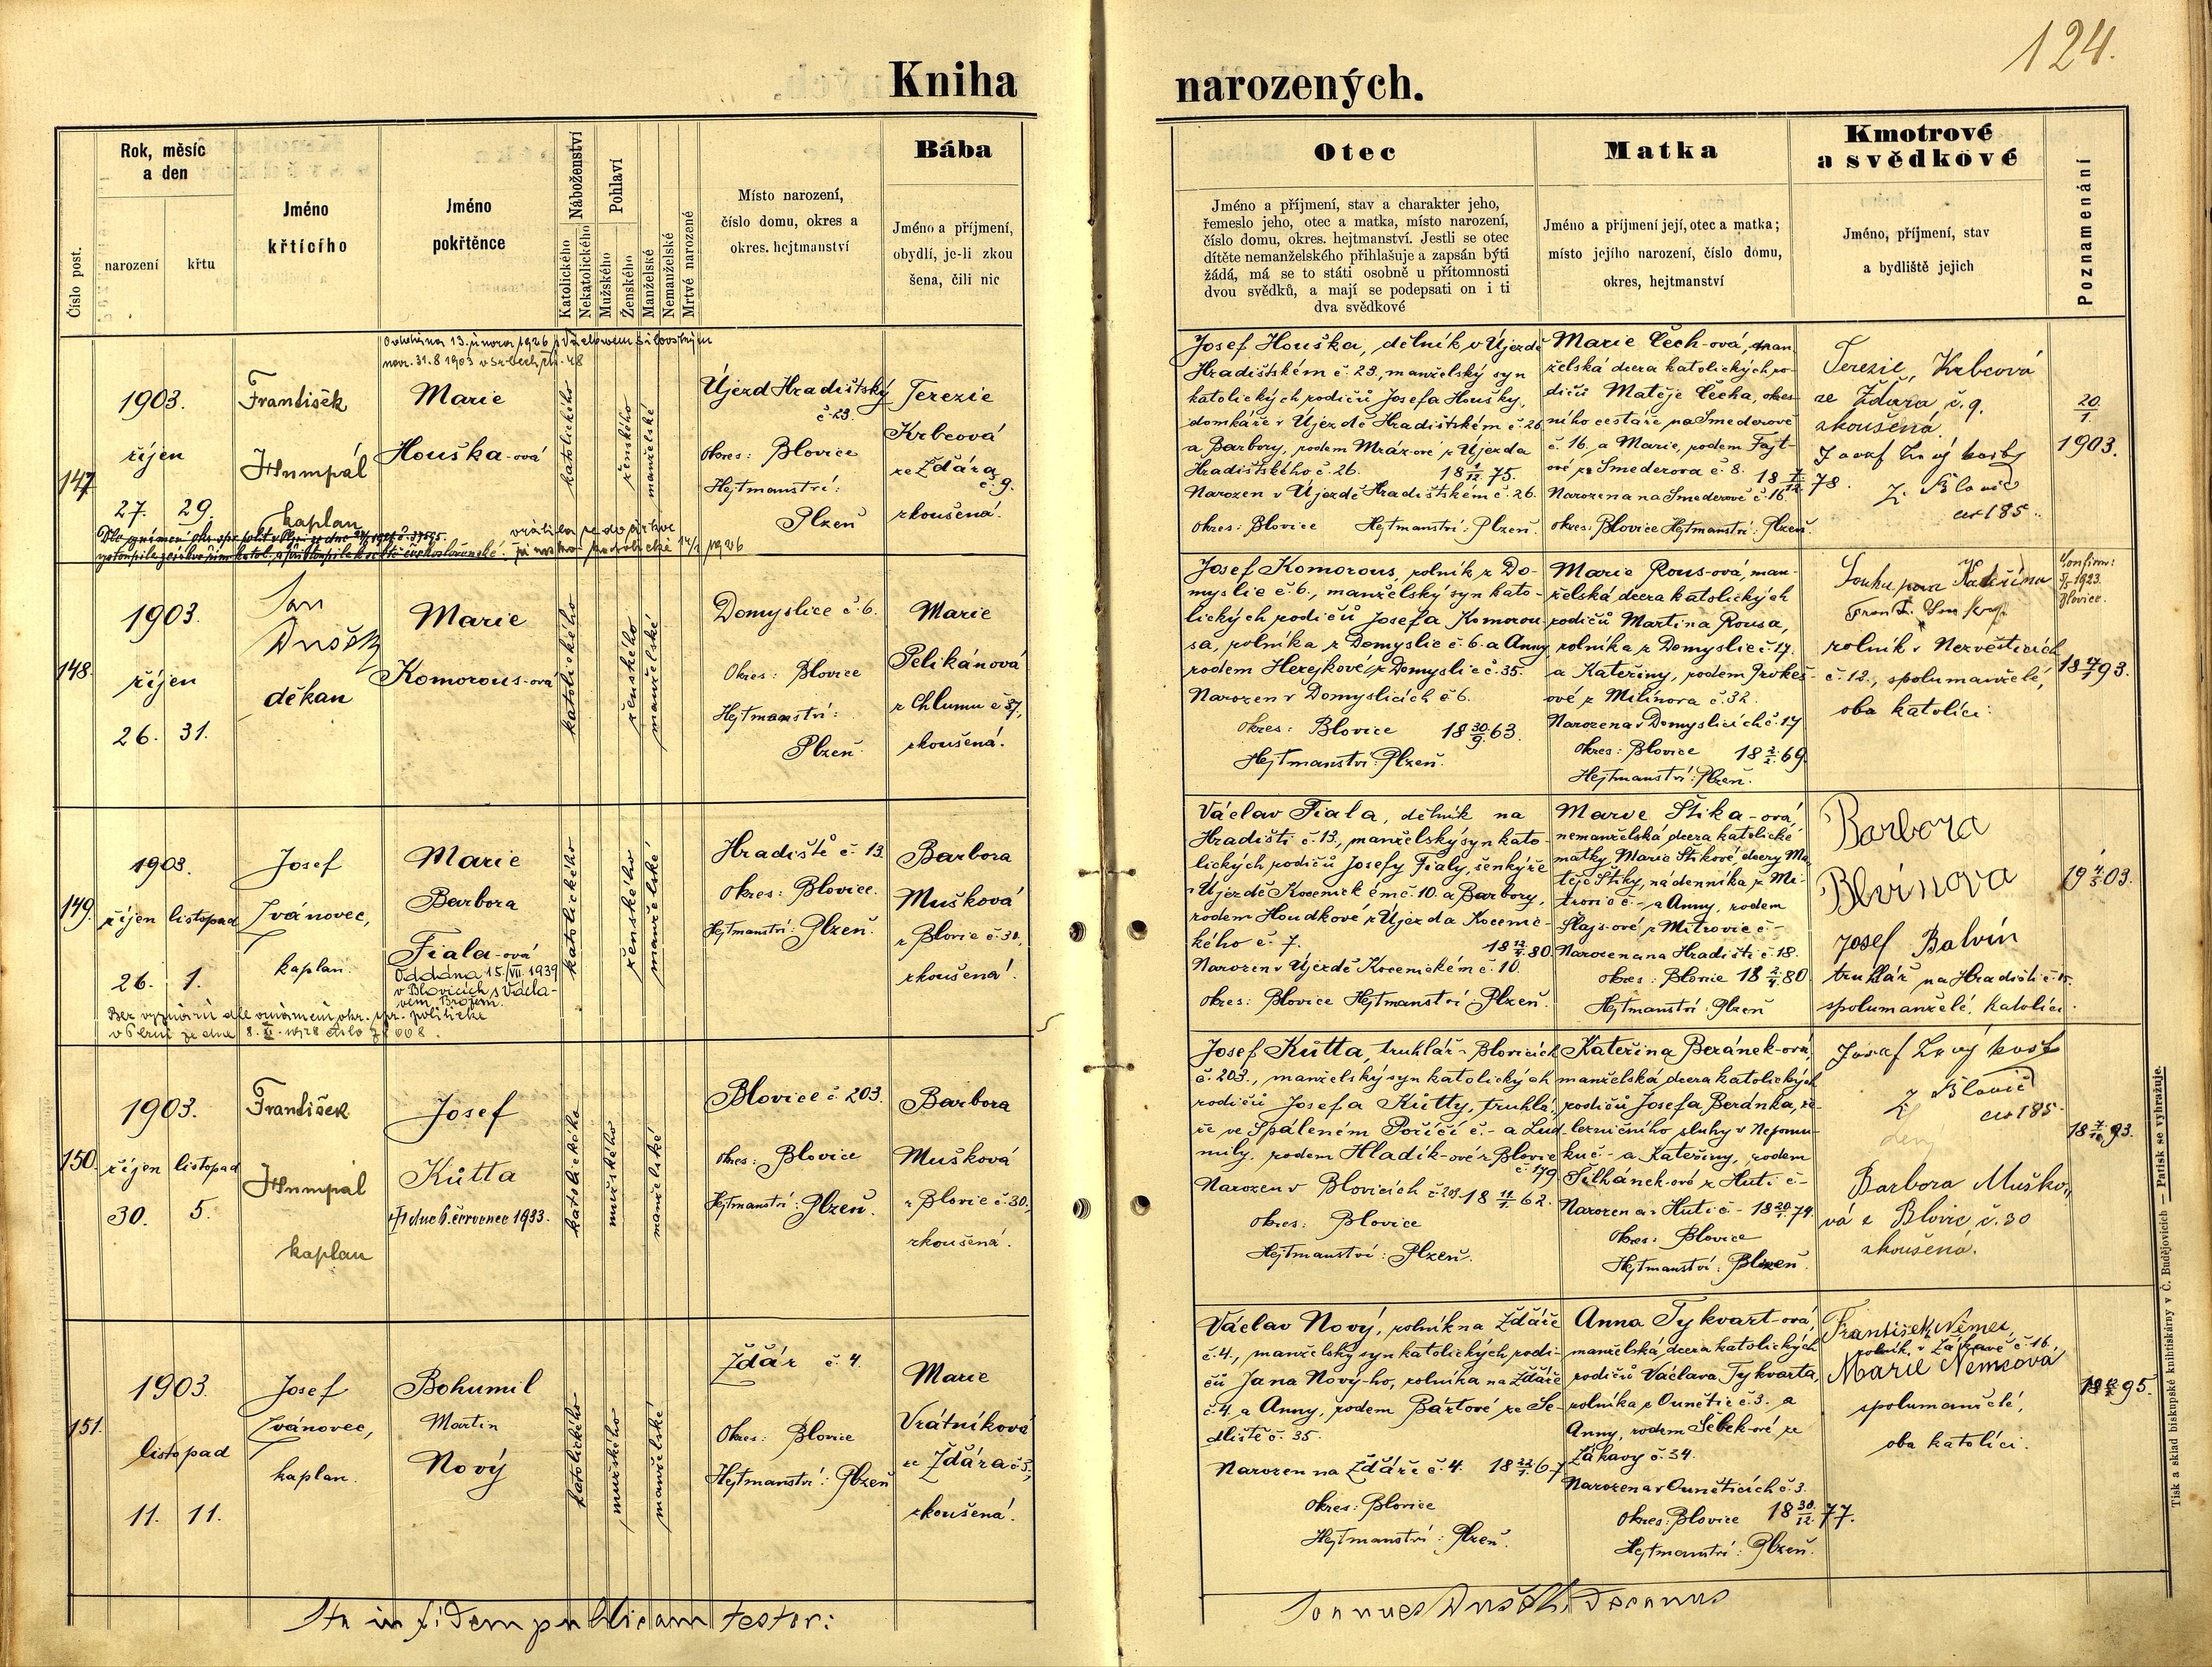 124.
Kniha narozených.
Číslo post.
Rok, měsíc
a den
narození
křtu
Jméno
křtícího
Jméno
pokřtěnce
Náboženství
Katolického
Nekatolického
Pohlaví
Mužského
Ženského
Manželské
Nemanželské
Mrtvé narozené
Místo narození,
číslo domu, okres a
okres. hejtmanství
Bába
Jméno a příjmení,
obydlí, je-li zkou
šena, čili nic
Otec
Jméno a příjmení, stav a charakter jeho,
řemeslo jeho, otec a matka, místo narození,
číslo domu, okres. hejtmanství. Jestli se otec
dítěte nemanželského přihlašuje a zapsán býti
žádá, má se to státi osobně u přítomnosti
dvou svědků, a mají se podepsati on i ti
dva svědkové
Matka
Jméno a příjmení její, otec a matka;
místo jejího narození, číslo domu,
okres, hejtmanství
Kmotrové
a svědkové
Jméno, příjmení, stav
a bydliště jejich
Poznamenání
147
1903.
říjen
27. 29.
František
Humpál
kaplan
Oddána 13. února 1926
nar. 31.8 1903
Marie
Houška-ová
katolického
ženského
manželské
Újezd Hradištský
č. 23.
Okres: Blovice
Hejtmanství:
Plzeň
Terezie
Krbcová
ze Ždára
č. 9.
zkoušená.
vrátila se do církve
Josef Houška, dělník v Újezdě
Hradištském č. 23., manželský syn
katolických rodičů Josefa Houšky,
domkáře v Újezdě Hradištském č. 26
a Barbory, rodem Mrázové z Újezda
Hradištského č. 26. 18 1/12 75.
Narozen v Újezdě Hradištském č. 26.
Okres: Blovice Hejtmanství: Plzeň.
Marie Čech-ová, man
želská dcera katolických ro-
dičů Matěje Čecha, okres
ního cestáře na Smederově
č. 16, a Marie, rodem Fajt-
ové ze Smederova č. 8. 18 78.
Narozena na Smederově č. 16
okres: Blovice Hejtmanství: Plzeň.
Terezie Krbcová
ze Ždára č. 9.
zkoušená
čís 185.
20/1
1903.
148.
1903.
říjen
26. 31.
Jan
Dušek
děkan
Marie
Komorous-ová
katolického
ženského
manželské
Domyslice č. 6.
Okres: Blovice
Hejtmanství:
Plzeň
Marie
Pelikánová
z Chlumu č 37,
zkoušená.
Josef Komorous, rolník z Do-
myslic č. 6., manželský syn kato-
lických rodičů Josefa Komorou-
sa, rolníka z Domyslic č. 6. a Anny
rodem Herejkové z Domyslic č. 35.
Narozen v Domyslicích č 6.
Okres: Blovice 18 30/9 63.
Hejtmanství: Plzeň.
Marie Rous-ová, man-
želská dcera katolických
rodičů Martina Rousa,
rolníka z Domyslic č. 17.
a Kateřiny, rodem Prokeš-
ové z Milínova č. 32.
Narozena v Domyslicích č. 17
Okres: Blovice 18 2/2 69.
Hejtmanství: Plzeň.
rolník v Nezvěsticích
č. 12., spolumanželé,
oba katolíci:
1923
Blovice.
149.
1903.
říjen listopad
26. 1.
Josef
Ivánovec,
kaplan.
Marie
Barbora
Fiala-ová
Oddána 15/VII. 1939
v Blovicích s Václa-
vem Brožem.
Bez vyznání dle oznámení okr. spr. politické
v Plzni ze dne 8.
katolického
ženského
manželské
Hradiště č. 13
Okres: Blovice.
Hejtmanství: Plzeň.
Barbora
Mušková
z Blovic č. 30.
zkoušená!
Václav Fiala, dělník na
Hradišti č. 13., manželský syn kato-
lických rodičů Josefy Fialy, šenkýře
v Újezdě Kocenickém č. 10. a Barbory,
rodem Houdkové z Újezda Kocenic-
kého č. 7. 80
Narozen v Újezdě Kocenickém č. 10.
Okres: Blovice Hejtmanství: Plzeň.
Marie Štika-ová,
nemanželská dcera katolické
matky Marie Štikové, dcery Ma
těje Štiky, nádenníka z Mi-
trovic č. - a Anny, rodem
Šlajs-ové z Mitrovic č -
Narozena na Hradišti č. 18.
Okres: Blovice 80.
Hejtmanství: Plzeň
Barbora
Blvínova
Josef Balvín
truhlář na Hradišti č. 15.
spolumanželé, katolíci.
19 4/5 03.
150.
1903.
říjen listopad
30. 5.
František
Humpál
kaplan
Josef
Kůtta
† dne 6. července 1933.
katolického
mužského
manželské
Blovice č. 203.
Okres: Blovice
Hejtmanství: Plzeň.
Barbora
Mušková
z Blovic č. 30.
zkoušená.
Josef Kůtta, truhlář v Blovicích
č. 203., manželský syn katolických
rodičů Josefa Kůtty, truhlá-
ře ve Spáleném Poříčí č. - a Lud-
mily, rodem Hladík-ové z Blovic
č. 179
Narozen v Blovicích č. 203. 18 11/1 62.
Okres: Blovice
Hejtmanství: Plzeň.
Kateřina Beránek-ová,
manželská dcera katolických
rodičů Josefa Beránka, že-
lezničního sluhy v Nepomu-
ku č - a Kateřiny, rodem
Šilhánek-ové z Huti č -
Narozena v Huti č - 18 20/1 74.
Okres: Blovice
Hejtmanství: Plzeň.
z Blovic
čís 185.
Barbora Muško-
vá z Blovic č. 30
zkoušená.
93.
151.
1903.
listopad
11. 11.
Josef
Ivánovec,
kaplan.
Bohumil
Martin
Nový
katolického
mužského
manželské
Ždár č. 4.
Okres: Blovice
Hejtmanství: Plzeň
Marie
Vrátníková
ze Ždára č. 3,
zkoušená!
Václav Nový, rolník na Ždáře
č. 4., manželský syn katolických rodi-
čů Jana Nový-ho, rolníka na Ždáře
č. 4. a Anny, rodem Bártové ze Se-
dliště č. 35.
Narozen na Ždáře č. 4. 67
Okres: Blovice
Hejtmanství: Plzeň.
Anna Tykvart-ová,
manželská dcera katolických
rodičů Václava Tykvarta,
rolníka z Ounětic č. 3. a
Anny, rodem Šebek-ové ze
Žákavy č. 34.
Narozena v Ouněticích č. 3.
Okres: Blovice 18 30/12 77.
Hejtmanství: Plzeň.
František Němec,
rolník v Žákavě č 16,
Marie Němcová
spolumanželé,
oba katolíci.
95.
Ita in fidem publicam testor:
Joannes Dušek, Decanus
Tisk a sklad biskupské knihtiskárny v Č. Budějovicích — Patisk se vyhražuje.